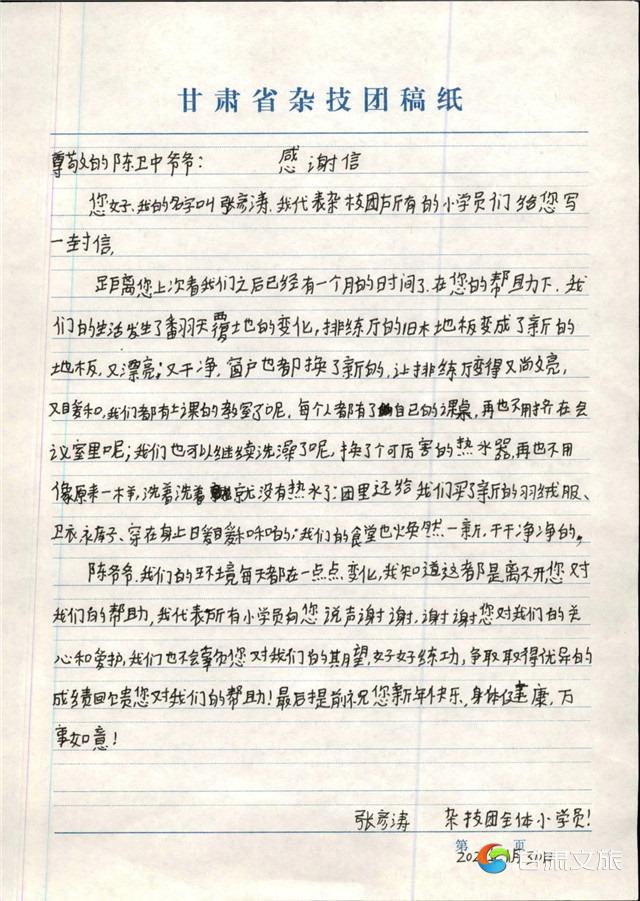 甘肃省杂技团稿纸
尊敬的陈卫中爷爷： 感谢信
您好，我的名字叫张彦涛，我代表杂技团所有的小学员们给您写
一封信，
距离您上次看我们之后已经有一个月的时间了，在您的帮助力下，我
们的生活发生了翻天覆地的变化，排练厅的旧木地板变成了新的
地板，又漂亮；又干净，窗户也都换了新的，让排练厅变得又尚亮，
又暖和，我们都有上课的教室了呢，每个人都有了自己的课桌，再也不用挤在会
议室里呢；我们也可以继续洗澡了呢，换了个可厉害的热水器，再也不用
像原来一样，洗着洗着就没有热水了；团里还给我们买了新的羽绒服、
卫衣、衣库子、穿在身上日爰暖和和的；我们的食堂也火焕然一新，干干净净的，
陈爷爷，我们的环境每天都在一点点变化，我知道这都是离不开您对
我们的帮助，我代表所有小学员向您说声谢谢，谢谢您对我们的关
心和爱护，我们也不会辜负您对我们的期望，好好练功，争取取得优异的
成绩回馈您对我们的帮助！最后提前祝您新年快乐，身体健康，万
事如意！
张彦涛 杂技团全体小学员！
第 页
甘肃文旅